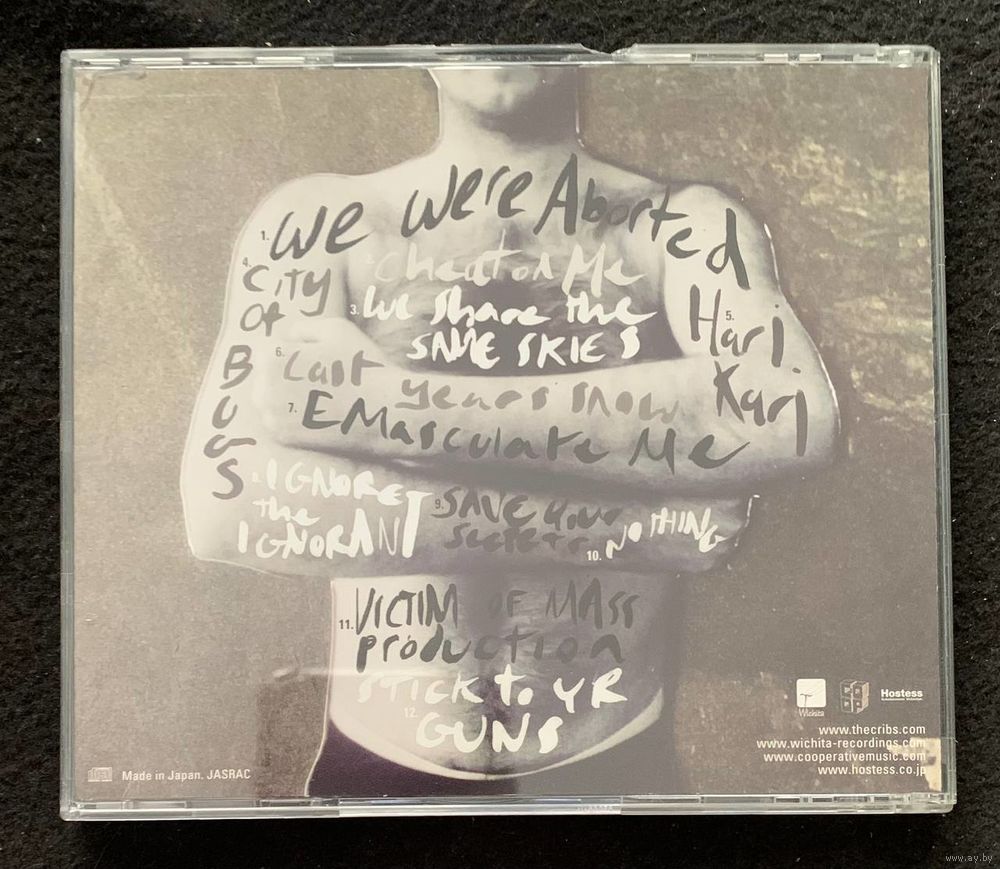 1. We Were Aborted
2. Cheat on Me
3. We Share the
SAME SKIES
4. City
OF
BUGS
5. Hari
Kari
6. Last
years snow
7. EMasculate Me
8. IGNORE
the
IGNORANT
9. SAVE your
Secrets
10. NOTHING
11. VICTIM OF MASS
production
STICK to YR
12. GUNS
Wichita
CO
OP
Hostess
www.thecribs.com
www.wichita-recordings.com
www.cooperativemusic.com
www.hostess.co.jp
Made in Japan. JASRAC
www.ay.by